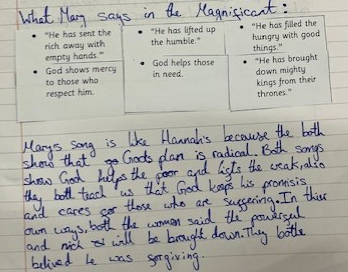 What Mary says in the Magnificant:
• "He has sent the
rich away with
empty hands."
• God shows mercy
to those who
respect him.
• "He has lifted up
the humble."
• God helps those
in need.
• "He has filled the
hungry with good
things."
• "He has brought
down mighty
kings from their
thrones."
Marys song is like Hannah's because the both
show that Gods plan is radical. Both songs
show God helps the poor and lifts the weak, also
they both teach us that God keeps his promisis
and cares for those who are suffering. In thier
own ways, both the women said the powerful
and rich will be brought down. They bothe
belived he was forgiving.